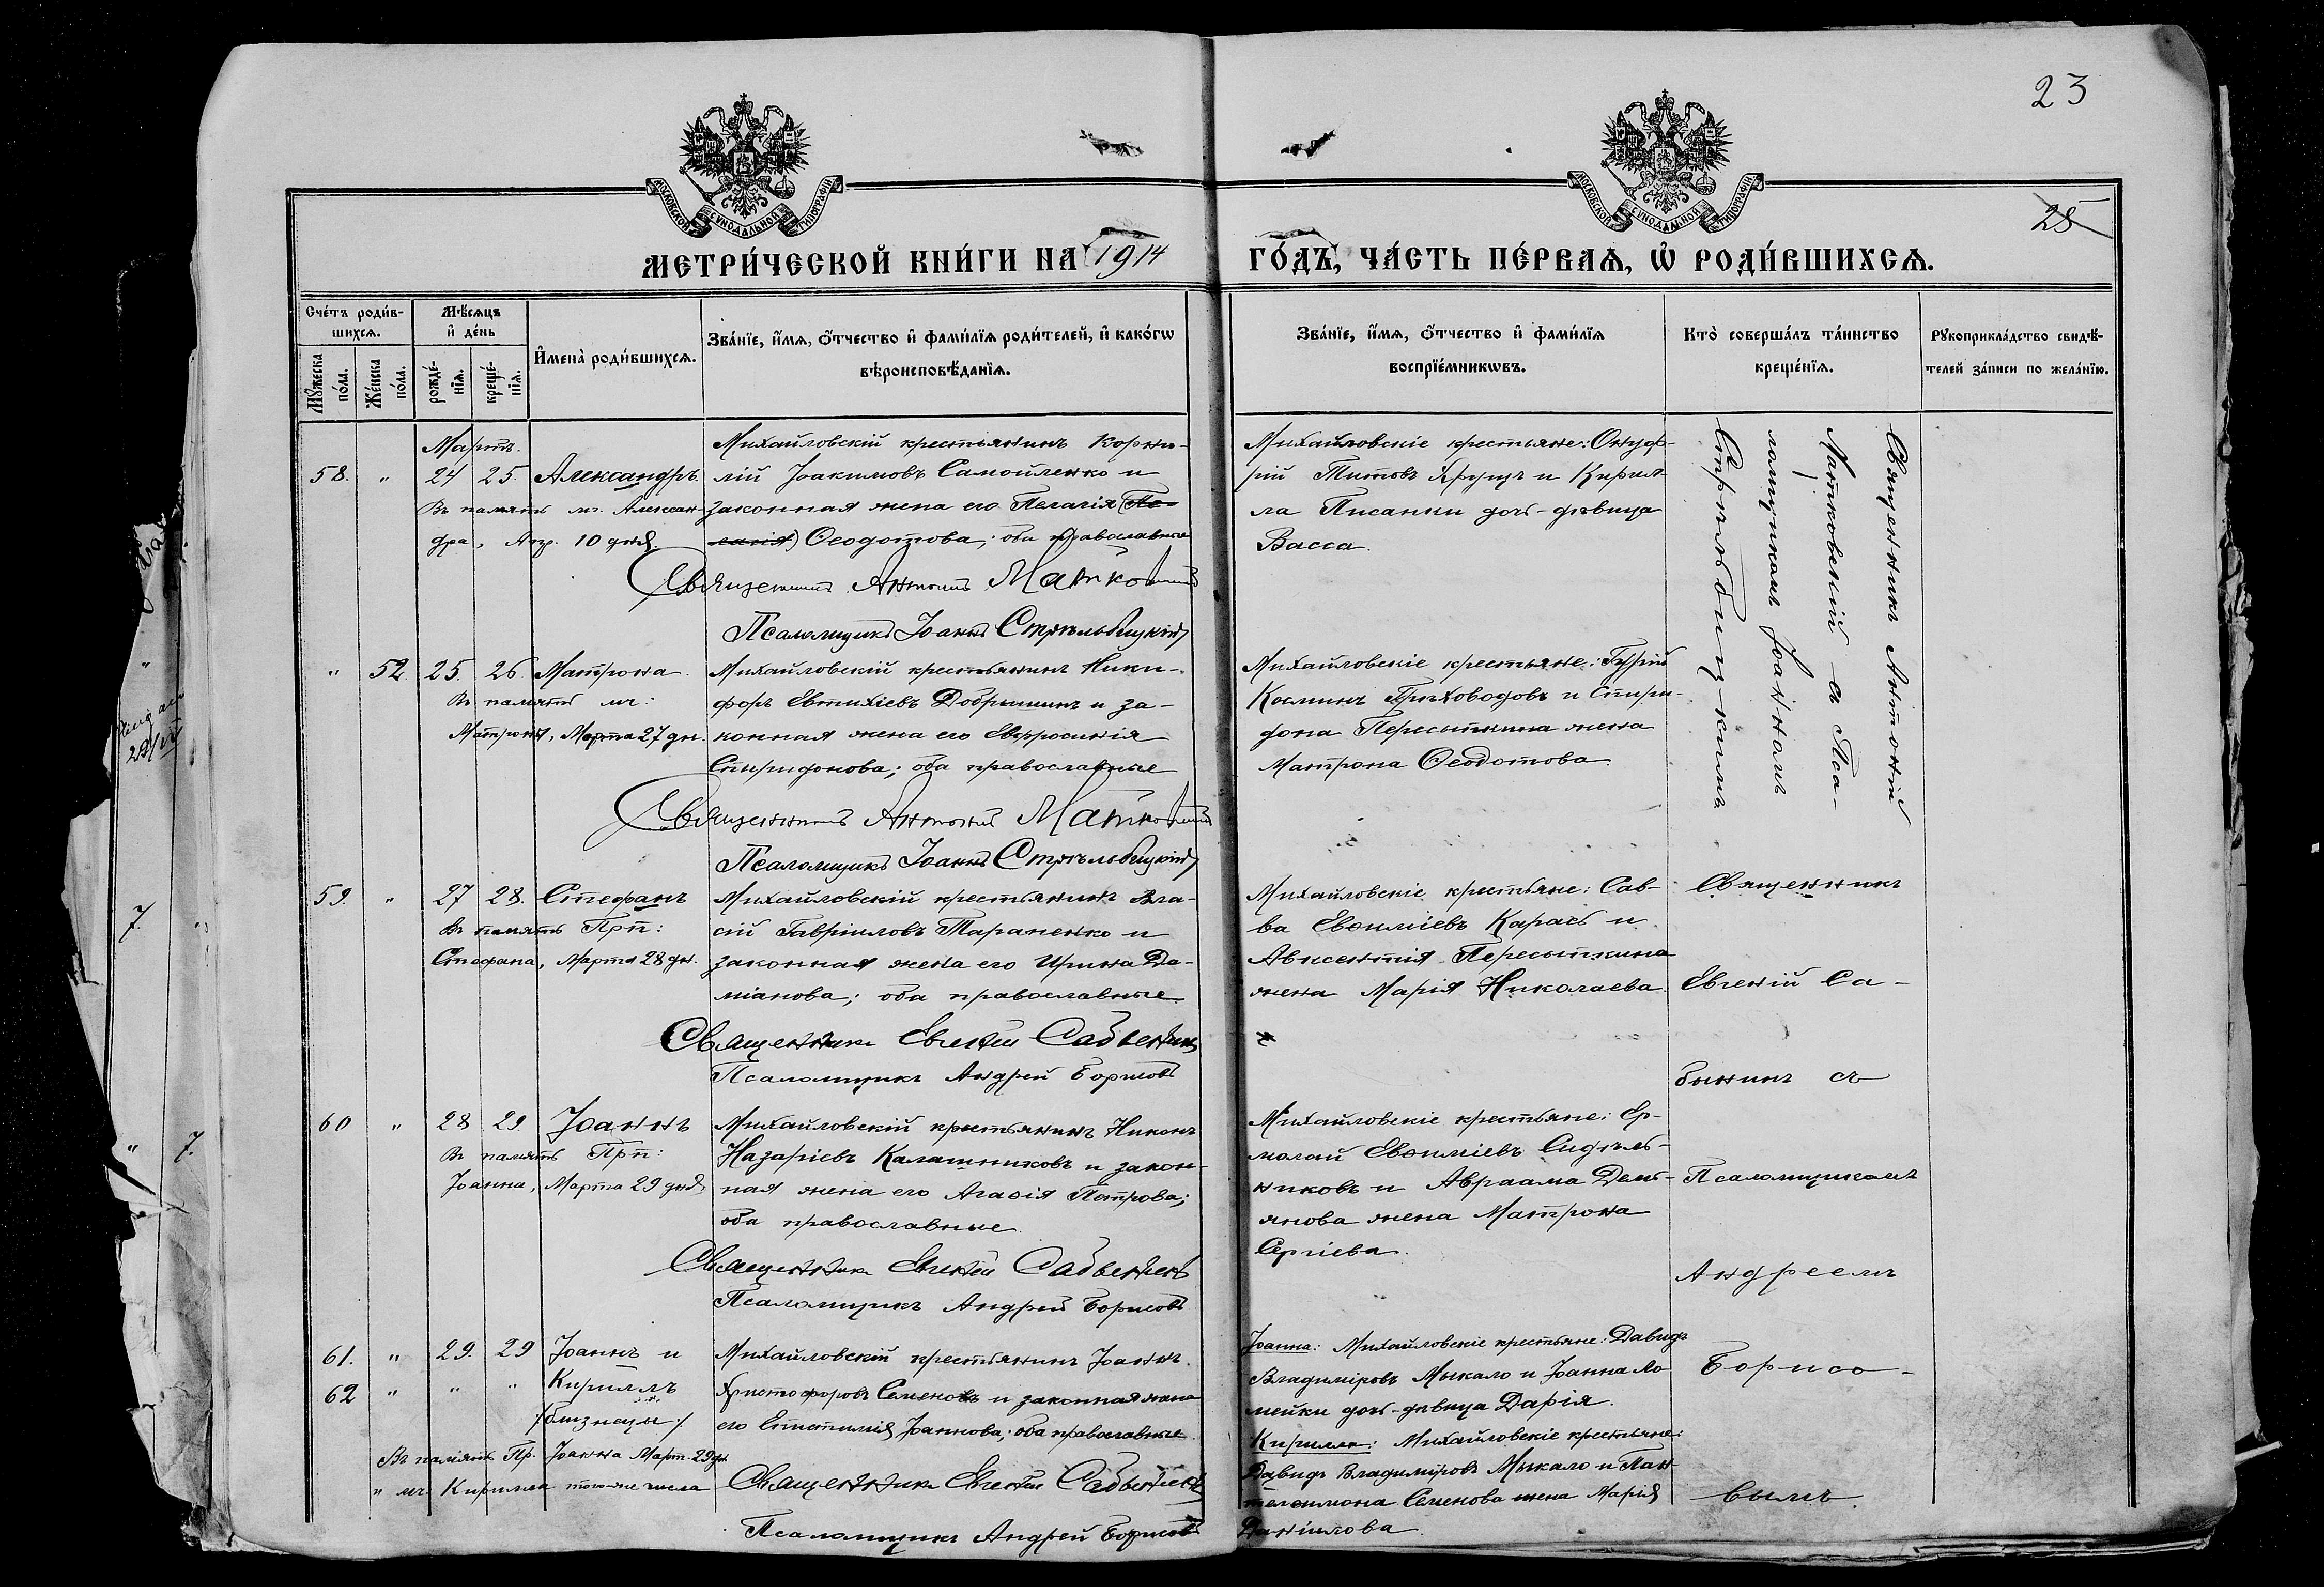 23
МОСКОВСКОЙ СУНОДАЛЬНОЙ ТИПОГРАФІИ
МОСКОВСКОЙ СУНОДАЛЬНОЙ ТИПОГРАФІИ
25
МЕТРИ́ЧЕСКОЙ КНИ́ГИ НА 1914 ГО́ДЪ, ЧА́СТЬ ПЕ́РВАѦ, Ѽ РОДИ́ВШИХСѦ.
Сче́тъ роди́в-
шихсѧ.
Мꙋ́жеска по́ла.
Же́нска по́ла.
Мѣ́сѧцъ
и҆ де́нь
рожде́-
нїѧ.
креще́-
нїѧ.
И҆мена̀ роди́вшихсѧ.
Зва́нїе, и҆́мѧ, ѻ҆́тчество и҆ фами́лїѧ роди́телей, и҆ како́гѡ
вѣроисповѣ́данїѧ.
Зва́нїе, и҆́мѧ, ѻ҆́тчество и҆ фами́лїѧ
воспрїе́мникѡвъ.
Кто̀ соверша́лъ та́инство
креще́нїѧ.
Рꙋкоприкла́дство свидѣ́-
телей за́писи по жела́нїю.
Мартъ.
58. " 24 25. Александръ.
Въ память мч. Алексан-
дра, Апр. 10 дня.
Михайловскій крестьянинъ Корни-
лій Іоакимовъ Самойленко и
законная жена его Пелагія (Пе-
лагія) Ѳеодотова; оба православные
Священникъ Антоній Матковскій
Псаломщикъ Іоаннъ Стрѣльбицкій
Михайловскіе крестьяне: Онуф-
рій Титовъ Ярущъ и Кирил-
ла Писанки дочь-дѣвица
Васса.
Священникъ Антоній
Матковскій съ Пса-
ломщикомъ Іоанномъ
Стрѣльбицкимъ
" 52. 25. 26. Матрона.
Въ память мч:
Матроны, Марта 27 дн.
Михайловскій крестьянинъ Ники-
форъ Евтихіевъ Добрышинъ и за-
конная жена его Евфросинія
Спиридонова; оба православные
Священникъ Антоній Матковскій
Псаломщикъ Іоаннъ Стрѣльбицкій
Михайловскіе крестьяне: Гурій
Косминъ Приховодовъ и Спири-
дона Пересыпкина жена
Матрона Ѳеодотова.
59. " 27 28. Стефанъ
Въ память Прп:
Стефана, Марта 28 дн.
Михайловскій крестьянинъ Вла-
сій Гавріиловъ Тараненко и
законная жена его Ирина Да-
міанова; оба православные
Священникъ Евгеній Савынинъ
Псаломщикъ Андрей Борисовъ
Михайловскіе крестьяне: Сав-
ва Евѳиміевъ Карась и
Авксентія Пересыпкина
жена Марія Николаева.
Священникъ
Евгеній Са-
бынинъ съ
60 " 28 29. Іоаннъ
Въ память Прп:
Іоанна, Марта 29 дня
Михайловскій крестьянинъ Никонъ
Назаріевъ Калашниковъ и закон-
ная жена его Агаѳія Петрова;
оба православные.
Священникъ Евгеній Сабынинъ
Псаломщикъ Андрей Борисовъ
Михайловскіе крестьяне: Ер-
молай Евѳиміевъ Сидѣль-
никовъ и Авраама Демь-
янова жена Матрона
Сергіева.
Псаломщикомъ
Андреемъ
61. " 29. 29 Іоаннъ и
62 " " " Кириллъ
/близнецы/
Въ память Пр. Іоанна Март. 29 дн
" мч. Кирилла того-же числа
Михайловскій крестьянинъ Іоаннъ
Христофоровъ Семеновъ и законная жена
его Епистимія Іоаннова; оба православные.
Священникъ Евгеній Сабынинъ
Псаломщикъ Андрей Борисовъ
Іоанна: Михайловскіе крестьяне: Давидъ
Владиміровъ Мыкало и Іоанна Ло-
мейки дочь-дѣвица Дарія.
Кирилла: Михайловскіе крестьяне:
Давидъ Владиміровъ Мыкало и Пан-
телеимона Семенова жена Марія
Даніилова.
Борисо-
вымъ.
7. "
" 7.